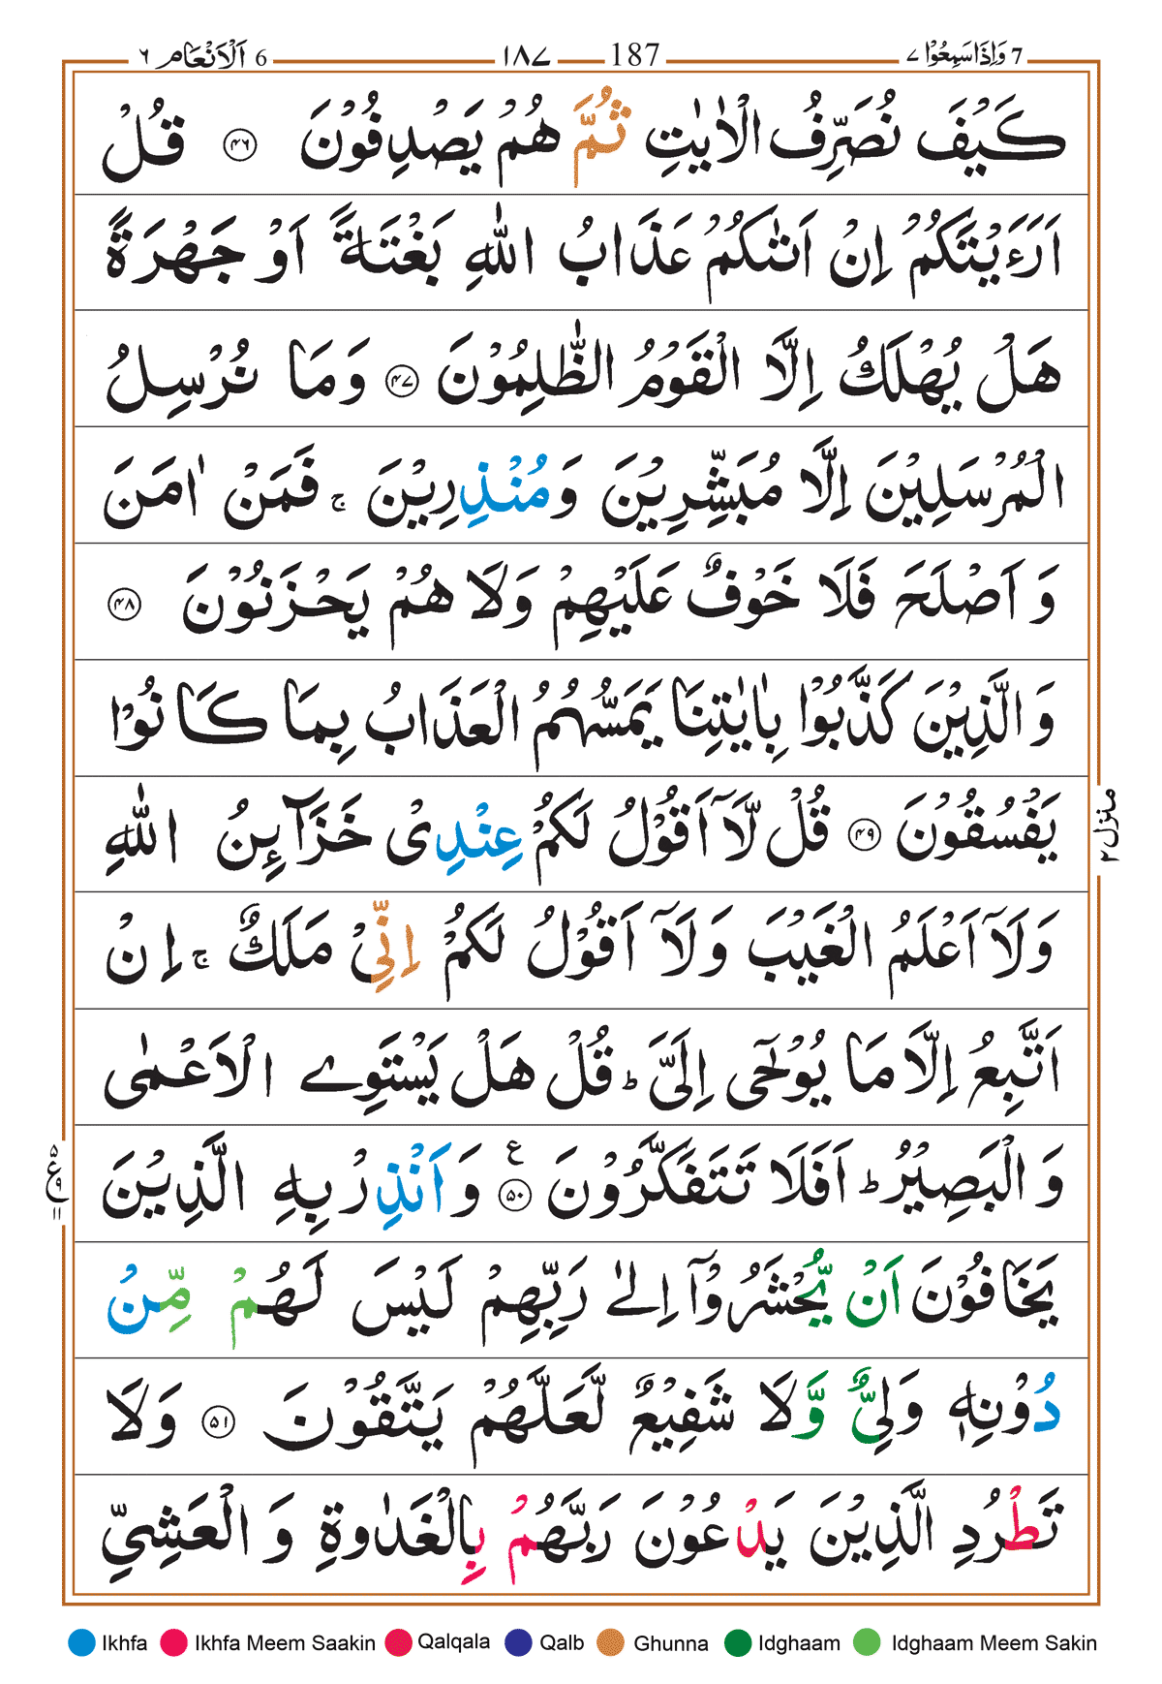 ٦ اَلْاَنْعَام 6 ١٨٧ 187 ٧ وَاِذَاسَمِعُوْا 7
كَيْفَ نُصَرِّفُ الْاٰيٰتِ ثُمَّ هُمْ يَصْدِفُوْنَ ﴿٤٦﴾ قُلْ
اَرَءَيْتَكُمْ اِنْ اَتٰىكُمْ عَذَابُ اللّٰهِ بَغْتَةً اَوْ جَهْرَةً
هَلْ يُهْلَكُ اِلَّا الْقَوْمُ الظّٰلِمُوْنَ ﴿٤٧﴾ وَمَا نُرْسِلُ
الْمُرْسَلِيْنَ اِلَّا مُبَشِّرِيْنَ وَمُنْذِرِيْنَ ۚ فَمَنْ اٰمَنَ
وَاَصْلَحَ فَلَا خَوْفٌ عَلَيْهِمْ وَلَا هُمْ يَحْزَنُوْنَ ﴿٤٨﴾
وَالَّذِيْنَ كَذَّبُوْا بِاٰيٰتِنَا يَمَسُّهُمُ الْعَذَابُ بِمَا كَانُوْا
يَفْسُقُوْنَ ﴿٤٩﴾ قُلْ لَّاۤ اَقُوْلُ لَكُمْ عِنْدِىْ خَزَآئِنُ اللّٰهِ
وَلَاۤ اَعْلَمُ الْغَيْبَ وَلَاۤ اَقُوْلُ لَكُمْ اِنِّىْ مَلَكٌ ۚ اِنْ
اَتَّبِعُ اِلَّا مَا يُوْحٰٓى اِلَىَّ ؕ قُلْ هَلْ يَسْتَوِى الْاَعْمٰى
وَالْبَصِيْرُ ؕ اَفَلَا تَتَفَكَّرُوْنَ ﴿٥٠﴾ ع وَاَنْذِرْ بِهِ الَّذِيْنَ
يَخَافُوْنَ اَنْ يُّحْشَرُوْۤا اِلٰى رَبِّهِمْ لَيْسَ لَهُمْ مِّنْ
دُوْنِهٖ وَلِىٌّ وَّلَا شَفِيْعٌ لَّعَلَّهُمْ يَتَّقُوْنَ ﴿٥١﴾ وَلَا
تَطْرُدِ الَّذِيْنَ يَدْعُوْنَ رَبَّهُمْ بِالْغَدٰوةِ وَالْعَشِىِّ
منزل ٢
٥ ع ٩ ١١
Ikhfa Ikhfa Meem Saakin Qalqala Qalb Ghunna Idghaam Idghaam Meem Sakin